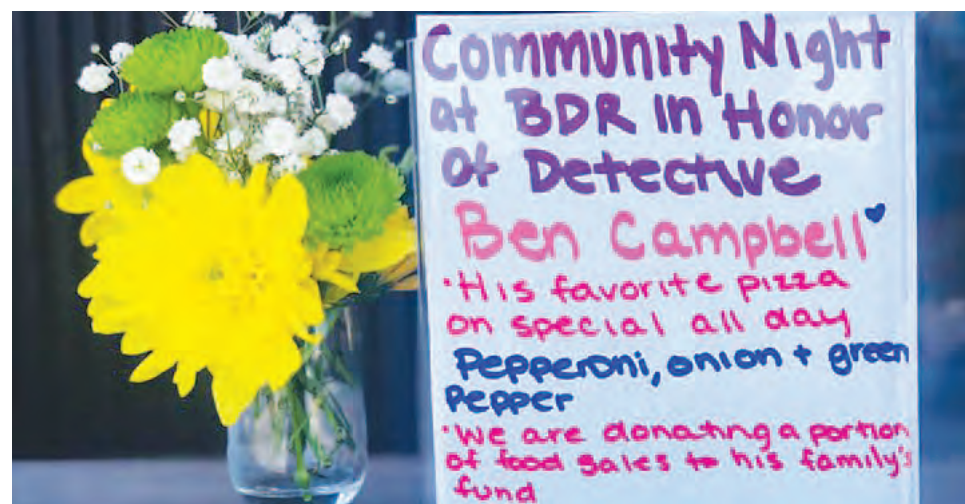 Community Night
at BDR In Honor
of Detective
Ben Campbell
·His favorite pizza
on special all day
Pepperoni, onion + green
Pepper
·We are donating a portion
of food sales to his family's
fund